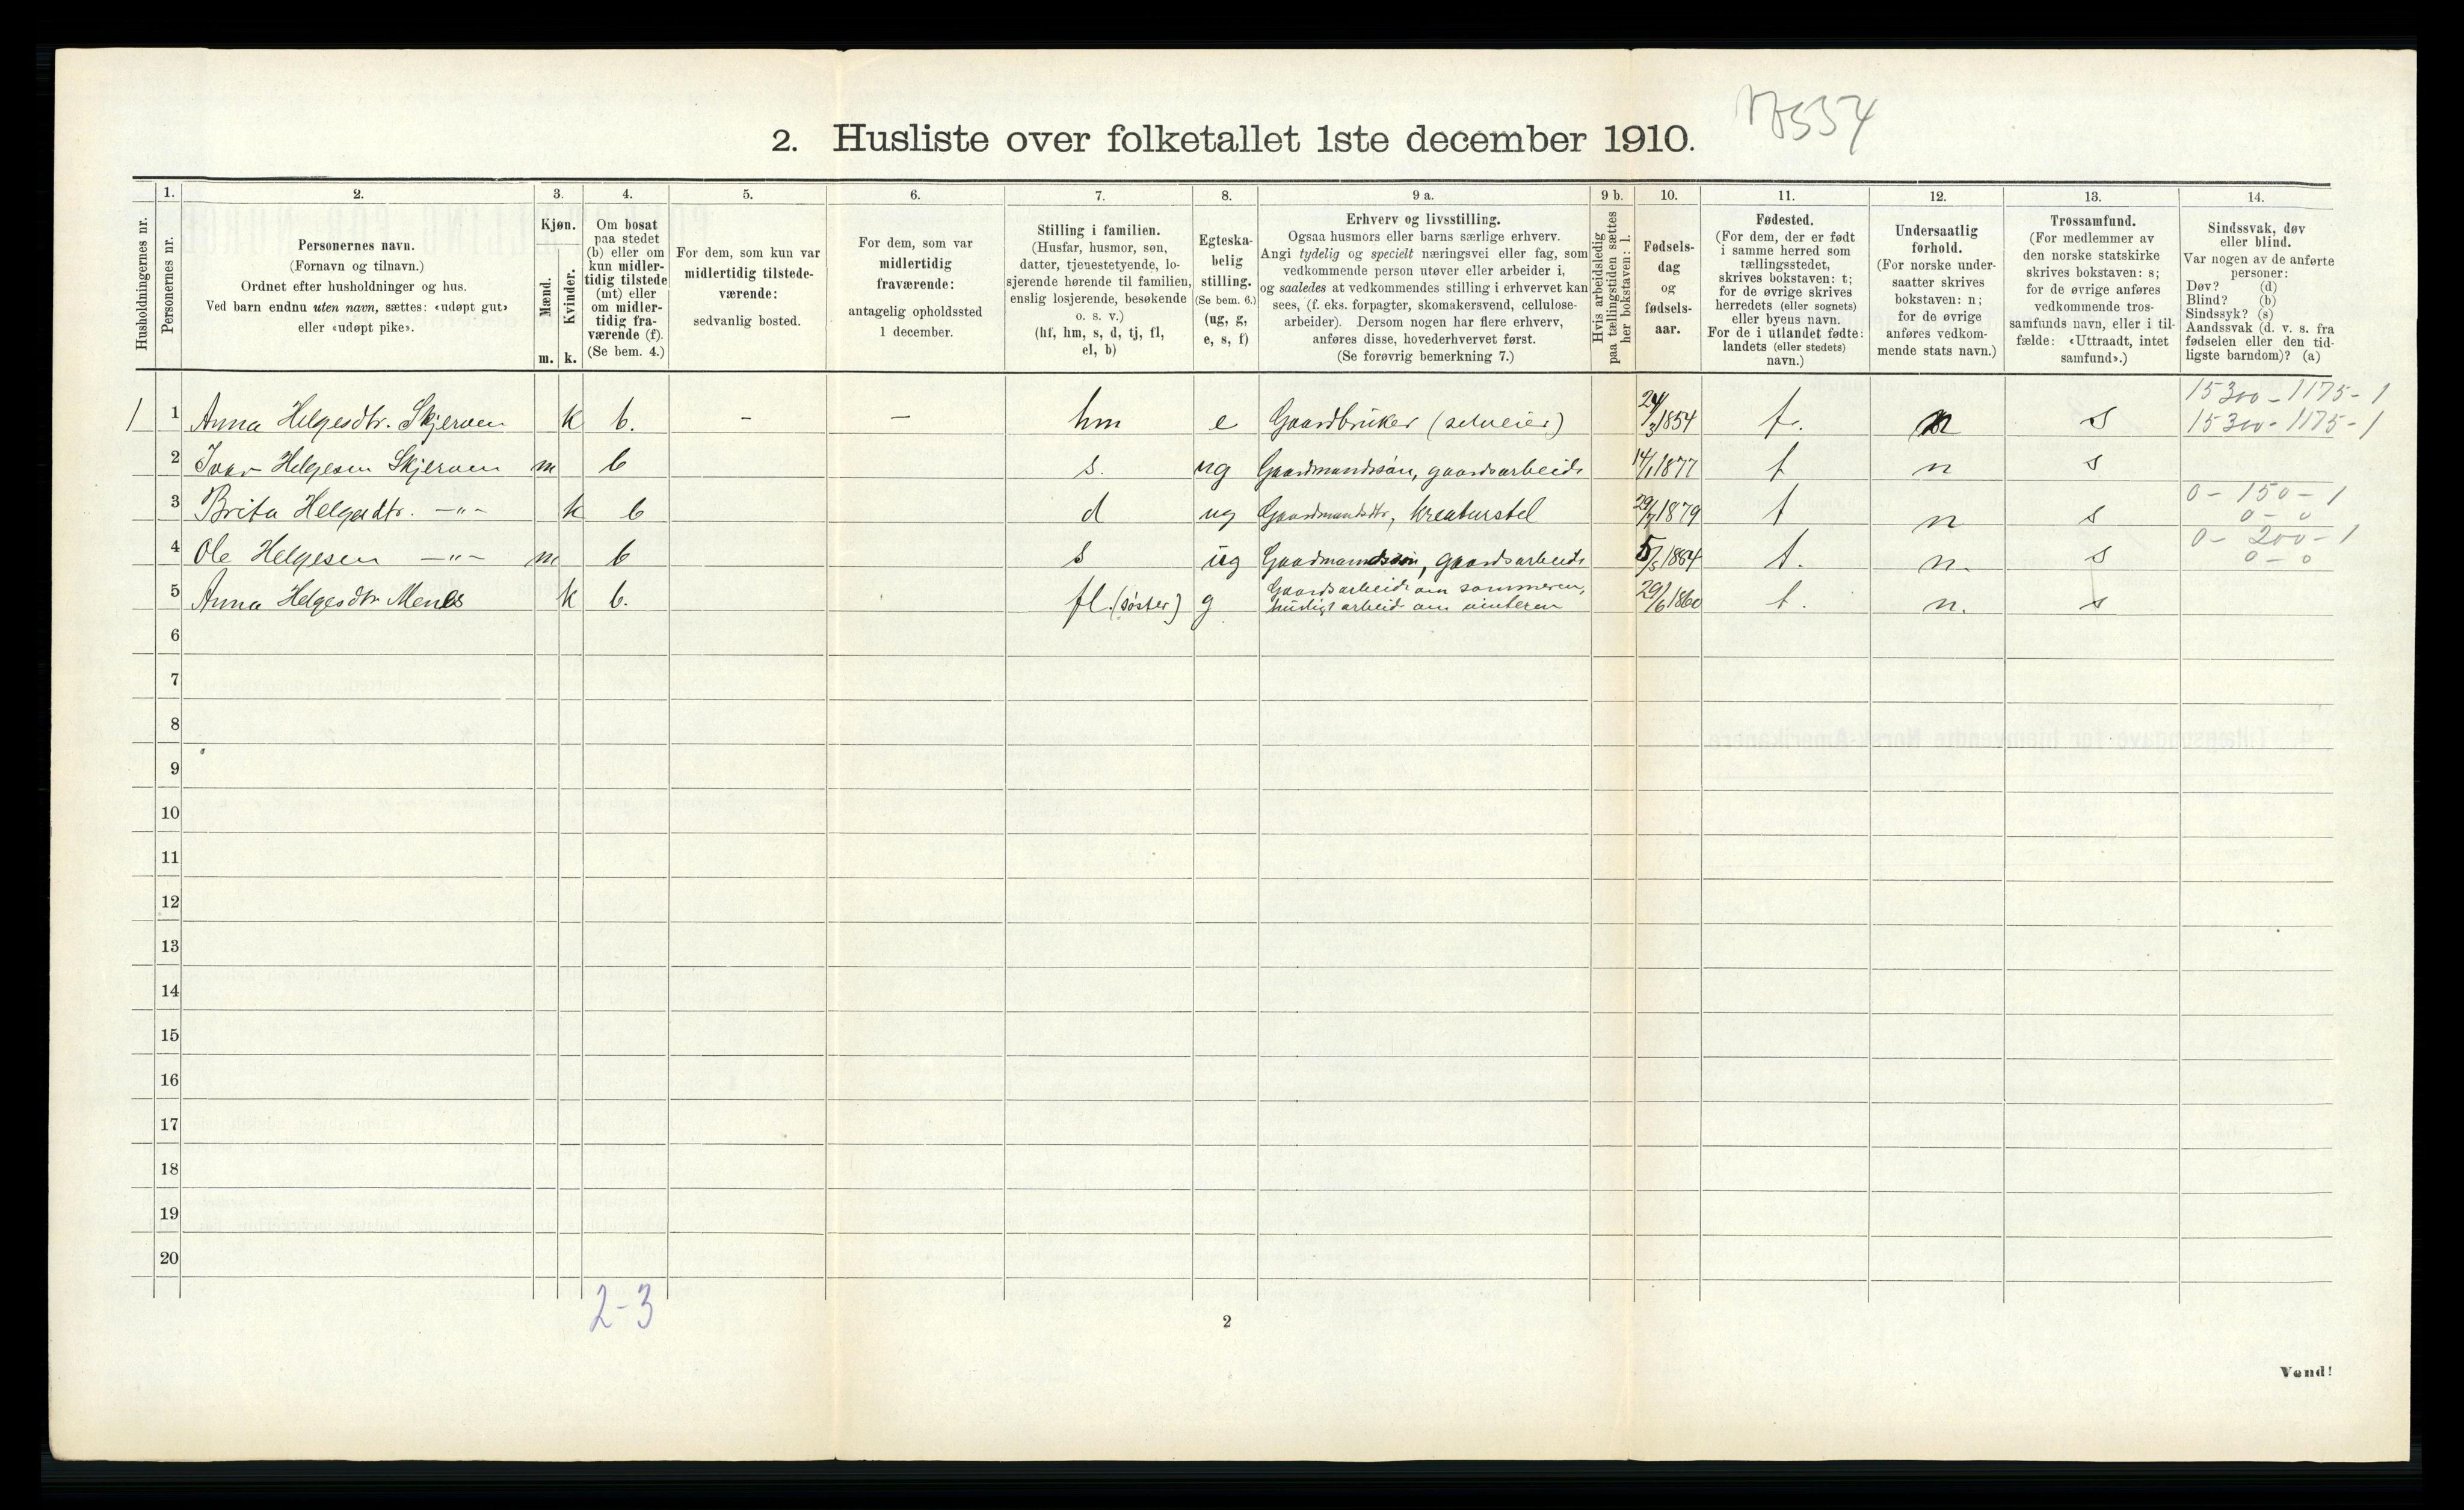 2. Husliste over folketallet 1ste december 1910.
1. 2. 3. 4. 5. 6. 7. 8. 9 a. 9 b. 10. 11. 12. 13. 14.
Husholdningernes nr.
Personernes nr.
Personernes navn.
(Fornavn og tilnavn.)
Ordnet efter husholdninger og hus.
Ved barn endnu uten navn, sættes: «udøpt gut»
eller «udøpt pike».
Kjøn.
Mænd.
Kvinder.
m. k.
Om bosat
paa stedet
(b) eller om
kun midler-
tidig tilstede
(mt) eller
om midler-
tidig fra-
værende (f).
(Se bem. 4.)
For dem, som kun var
midlertidig tilstede-
værende:
sedvanlig bosted.
For dem, som var
midlertidig
fraværende:
antagelig opholdssted
1 december.
Stilling i familien.
(Husfar, husmor, søn,
datter, tjenestetyende, lo-
sjerende hørende til familien,
enslig losjerende, besøkende
o. s. v.)
(hf, hm, s, d, tj, fl,
el, b)
Egteska-
belig
stilling.
(Se bem. 6.)
(ug, g,
e, s, f)
Erhverv og livsstilling.
Ogsaa husmors eller barns særlige erhverv.
Angi tydelig og specielt næringsvei eller fag, som
vedkommende person utøver eller arbeider i,
og saaledes at vedkommendes stilling i erhvervet kan
sees, (f. eks. forpagter, skomakersvend, cellulose-
arbeider). Dersom nogen har flere erhverv,
anføres disse, hovederhvervet først.
(Se forøvrig bemerkning 7.)
Hvis arbeidsledig
paa tællingstiden sættes
her bokstaven: l.
Fødsels-
dag
og
fødsels-
aar.
Fødested.
(For dem, der er født
i samme herred som
tællingsstedet,
skrives bokstaven: t;
for de øvrige skrives
herredets (eller sognets)
eller byens navn.
For de i utlandet fødte:
landets (eller stedets)
navn.)
Undersaatlig
forhold.
(For norske under-
saatter skrives
bokstaven: n;
for de øvrige
anføres vedkom-
mende stats navn.)
Trossamfund.
(For medlemmer av
den norske statskirke
skrives bokstaven: s;
for de øvrige anføres
vedkommende tros-
samfunds navn, eller i til-
fælde: «Uttraadt, intet
samfund».)
Sindssvak, døv
eller blind.
Var nogen av de anførte
personer:
Døv? (d)
Blind? (b)
Sindssyk? (s)
Aandssvak (d. v. s. fra
fødselen eller den tid-
ligste barndom)? (a)
15300-1175-1
1 1 Anna Helgesdtr. Skjerven k b. - - hm e Gaardbruker (selveier) 24/3 1854 t. n s 15300-1175-1
2 Ivar Helgesen Skjerven m b s. ug Gaardmandssøn, gaardsarbeide 14/1 1877 t n s
0-150-1
3 Brita Helgesdtr. -"- k b d ug Gaardmandsdtr, kreaturstel 29/7 1879 t n s 0-0
0-200-1
4 Ole Helgesen -"- m b s ug Gaardmandssøn, gaardsarbeide 5/5 1884 t. n. s 0-0
5 Anna Helgesdtr Menes k b. fl. (søster) g Gaardsarbeide om sommeren,
husligt arbeid om vinteren 29/6 1860 t. n. s
6
7
8
9
10
11
12
13
14
15
16
17
18
19
20
2-3
2
Vend!